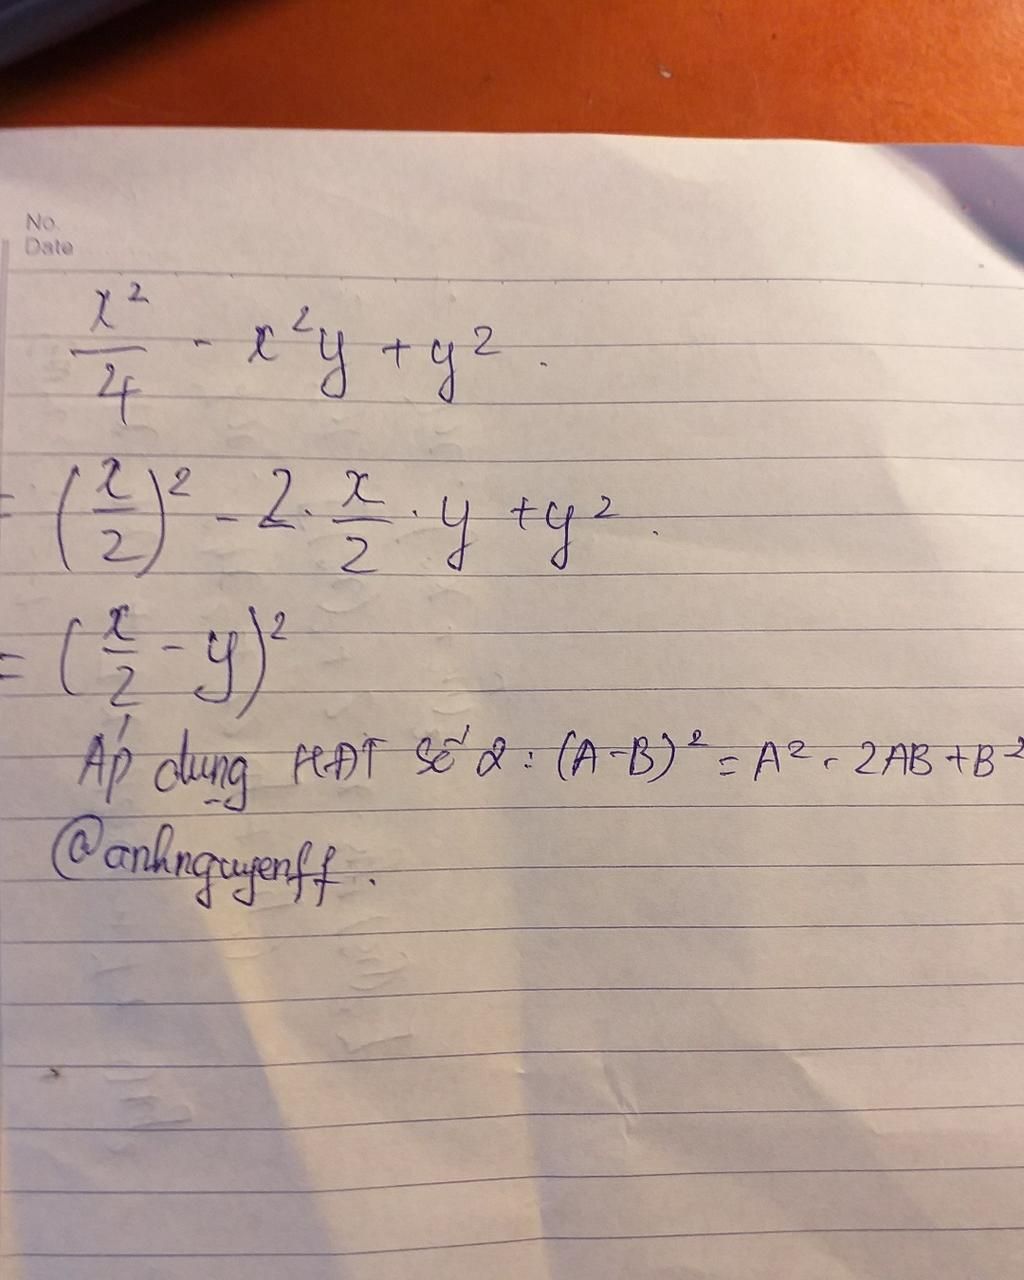 No.
Date
x²/4 - x²y + y².
= (x/2)² - 2. x/2 . y + y².
= (x/2 - y)²
Áp dụng HĐT Số 2 : (A-B)² = A² - 2AB + B²
@anhnguyenff.